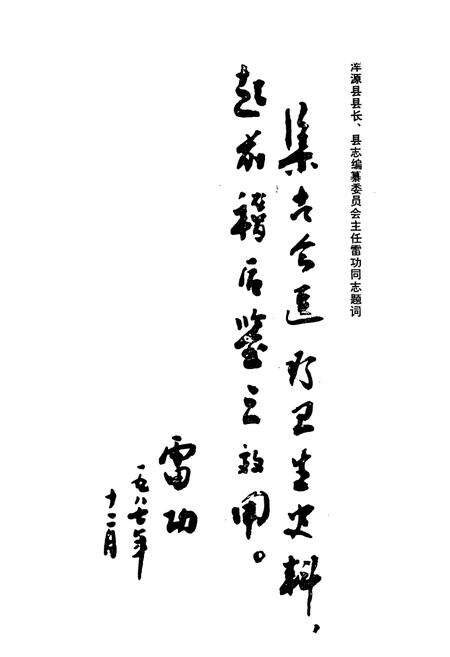 浑源县县长、县志编纂委员会主任雷功同志题词
集古今医疗卫生史料，
起前稽后鉴之效用。
雷功
一九八七年
十二月